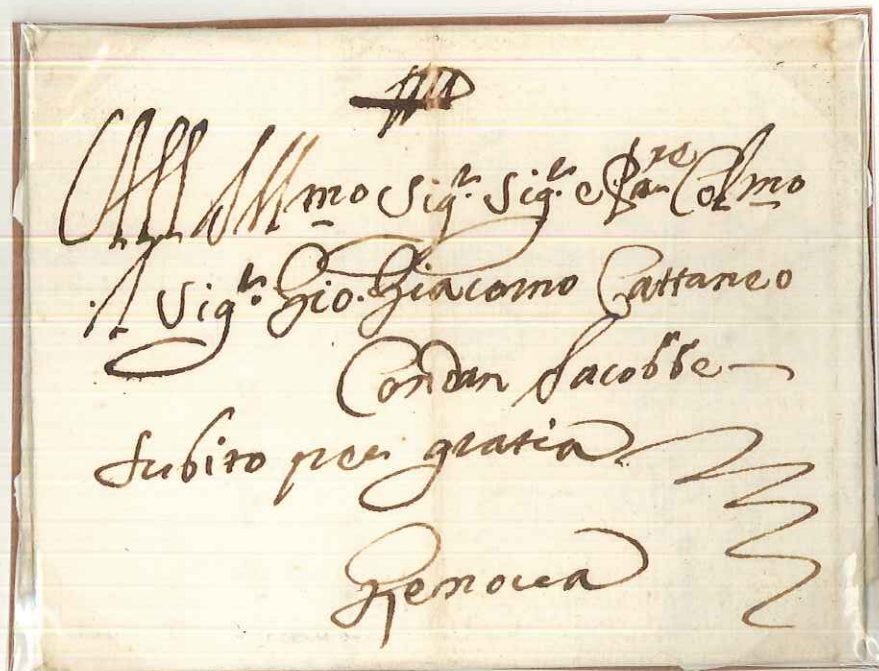 All Ill.mo Sig.r Sig.r e P.ne Col.mo
il Sig.r Gio. Giacomo Cattaneo
Jacobbe
Subito per gratia
Genova